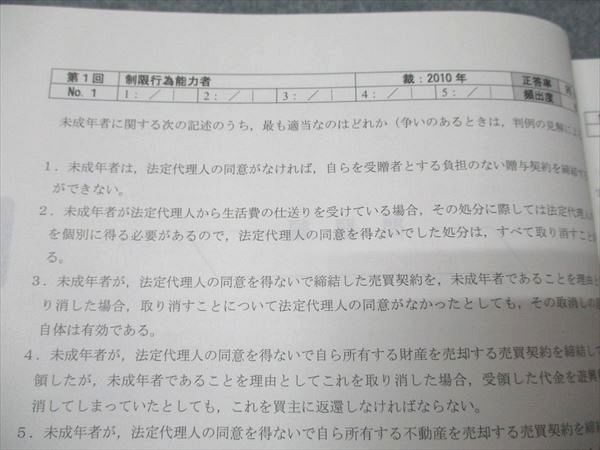 第1回 制限行為能力者 裁：2010年 正答率
No. 1 1： ／ 2： ／ 3： ／ 4： ／ 5： ／ 頻出度
未成年者に関する次の記述のうち，最も適当なのはどれか（争いのあるときは，判例の見解によ
1．未成年者は，法定代理人の同意がなければ，自らを受贈者とする負担のない贈与契約を締結す
ができない。
2．未成年者が法定代理人から生活費の仕送りを受けている場合，その処分に際しては法定代理人
を個別に得る必要があるので，法定代理人の同意を得ないでした処分は，すべて取り消すこ
る。
3．未成年者が，法定代理人の同意を得ないで締結した売買契約を，未成年者であることを理由と
り消した場合，取り消すことについて法定代理人の同意がなかったとしても，その取消しの
自体は有効である。
4．未成年者が，法定代理人の同意を得ないで自ら所有する財産を売却する売買契約を締結して
領したが，未成年者であることを理由としてこれを取り消した場合，受領した代金を遊興
消してしまっていたとしても，これを買主に返還しなければならない。
5．未成年者が，法定代理人の同意を得ないで自ら所有する不動産を売却する売買契約を締結